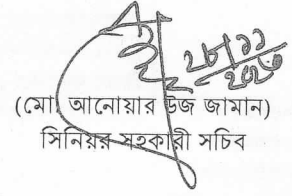 ২৮/১১/২০২৩
(মোঃ আনোয়ার উজ জামান)
সিনিয়র সহকারী সচিব